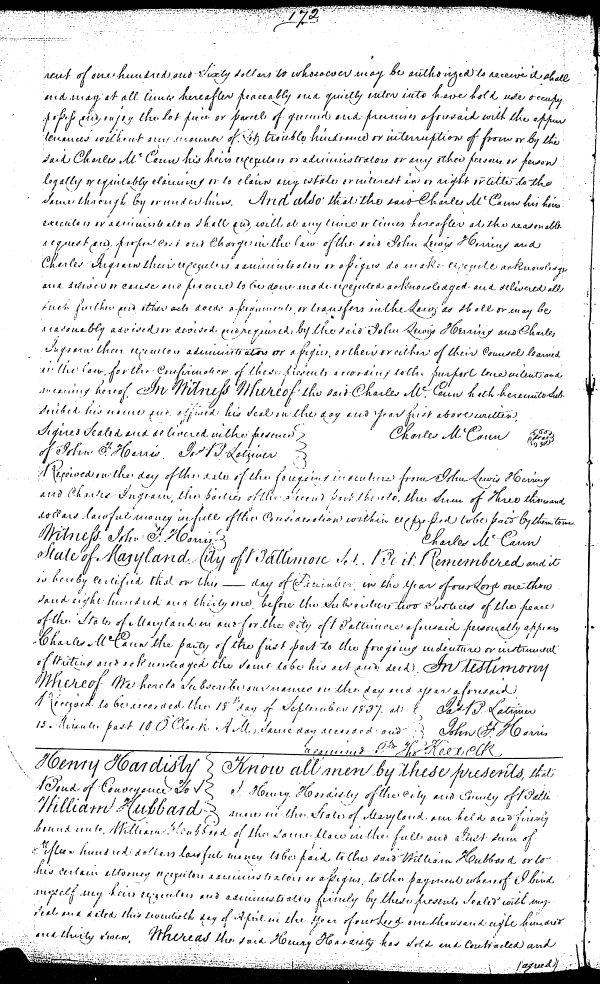 172
rent of one hundred and Sixty dollars to whosoever may be authorized to receive it shall
and may at all times hereafter peaceably and quietly enter into have hold use occupy
possess and enjoy the lot piece or parcel of ground and premises aforesaid with the appur
tenances without any manner of let trouble hindrance or interruption of from or by the
said Charles McCann his heirs executors or administrators or any other persons or person
legally or equitably claiming or to claim any estate or interest in or right or title to the
same through by or under him. And also that the said Charles McCann his heirs
executors or administrators shall and will at any time or times hereafter at the reasonable
request and proper cost and Charge in the law of the said John Lewis Herring and
Charles Ingram their executors administrators or assigns do make execute acknowledge
and deliver or cause and procure to be done made executed acknowledged and delivered all
such further and other acts deeds assignments or transfers in the Law as shall or may be
reasonably advised or devised and required by the said John Lewis Herring and Charles
Ingram their executors administrators or assigns, or their or either of their counsel learned
in the law, for the confirmation of these presents according to the purport true intent and
meaning hereof. In Witness Whereof the said Charles McCann hath hereunto Sub
scribed his name and affixed his seal on the day and year first above written,
Signed Sealed and delivered in the presence
of John F. Harris. Jas B. Latimer
Charles McCann
Received on the day of the date of the foregoing indenture from John Lewis Herring
and Charles Ingram, the parties of the second part thereto, the Sum of Three thousand
dollars lawful money in full of the Consideration within expressed to be paid by them to me
Witness John F. Harris
Charles McCann
State of Maryland. City of Baltimore Sct. Be it Remembered and it
is hereby certified that on this — day of December in the Year of our Lord one thou
sand eight hundred and thirty one, before the Subscribers two Justices of the peace
of the State of Maryland in and for the City of Baltimore aforesaid personally appears
Charles McCann the party of the first part to the foregoing indenture or instrument
of Writing and acknowledged the same to be his act and deed. In testimony
Whereof We hereto Subscribe our names on the day and year aforesaid
Jas B. Latimer
John F. Harris
Received to be recorded the 18th day of September 1837. at
15 Minutes past 10 O'Clock A.M. Same day recorded and
examined
Henry Hardisty
Bond of Conveyance To
William Hubbard
Know all men by these presents, that
I Henry Hardisty of the City and County of Balti
more in the State of Maryland am held and firmly
bound unto William Hubbard of the same place in the full and Just sum of
Fifteen hundred dollars lawful money to be paid to the said William Hubbard or to
his certain attorney executors administrators or assigns, to the payment whereof I bind
myself my heirs executors and administrators firmly by these presents Sealed with my
seal and dated this twentieth day of April in the Year of our Lord one thousand eight hundred
and thirty seven. Whereas the said Henry Hardisty has sold and contracted and
(agreed)